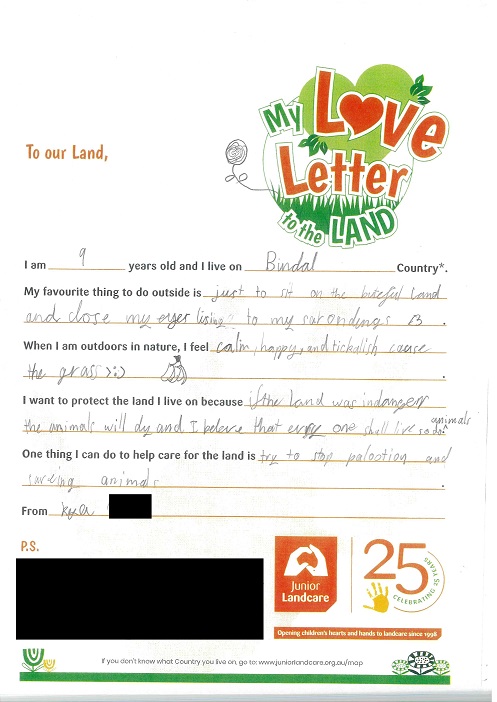 My Love
Letter
to the LAND
To our Land,
I am 9 years old and I live on Bindal Country*.
My favourite thing to do outside is just to sit on the buteful land
and close my eyes lising to my surondings <3 .
When I am outdoors in nature, I feel calm, happy, and tickalish cause
the grass >:) .
I want to protect the land I live on because if the land was in danger
the animals will dy and I beleve that evry one shall live so do animals .
One thing I can do to help care for the land is try to stop palootion and
saveing animals .
From
P.S.
Junior
Landcare
25
CELEBRATING 25 YEARS
Opening children's hearts and hands to landcare since 1998
If you don't know what Country you live on, go to: www.juniorlandcare.org.au/map